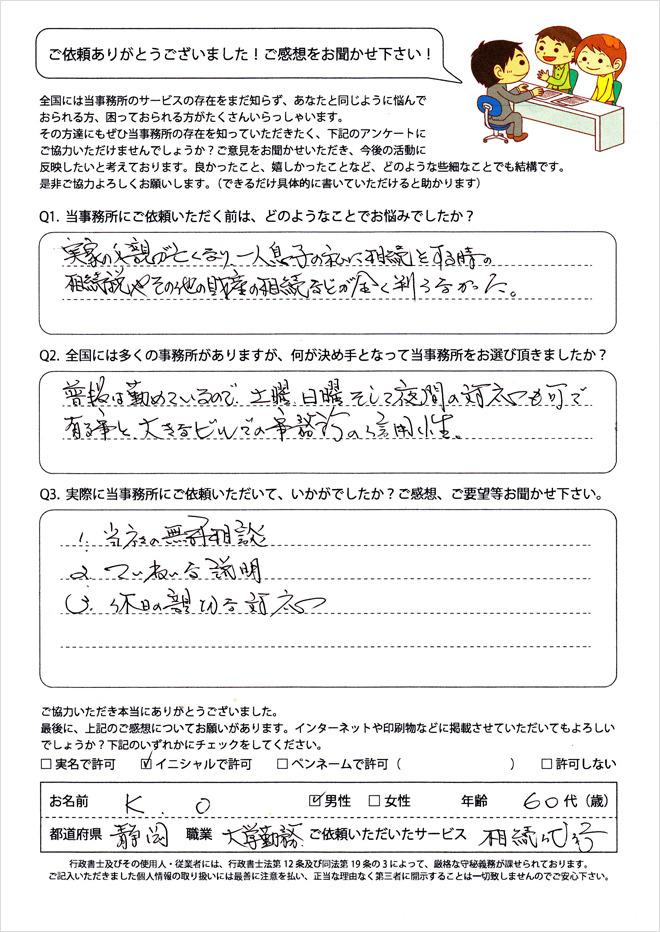 ご依頼ありがとうございました！ご感想をお聞かせ下さい！
全国には当事務所のサービスの存在をまだ知らず、あなたと同じように悩んで
おられる方、困っておられる方がたくさんいらっしゃいます。
その方達にもぜひ当事務所の存在を知っていただきたく、下記のアンケートに
ご協力いただけませんでしょうか？ご意見をお聞かせいただき、今後の活動に
反映したいと考えております。良かったこと、嬉しかったことなど、どのような些細なことでも結構です。
是非ご協力よろしくお願いします。（できるだけ具体的に書いていただけると助かります）
Q1. 当事務所にご依頼いただく前は、どのようなことでお悩みでしたか？
実家の親が亡くなり、一人息子の私に相続をする時の
相続税やその他の財産の相続などが全く判らなかった。
Q2. 全国には多くの事務所がありますが、何が決め手となって当事務所をお選び頂きましたか？
普段は勤めているので、土曜、日曜そして夜間の対応も可で
有る事と、大きなビルでの事務所の信用性。
Q3. 実際に当事務所にご依頼いただいて、いかがでしたか？ご感想、ご要望等お聞かせ下さい。
1. 当初の無料相談
2. ていねいな説明
3. 休日の親切な対応
ご協力いただき本当にありがとうございました。
最後に、上記のご感想についてお願いがあります。インターネットや印刷物などに掲載させていただいてもよろしい
でしょうか？下記のいずれかにチェックをしてください。
□ 実名で許可 ☑ イニシャルで許可 □ ペンネームで許可（ ） □ 許可しない
お名前 K. O ☑ 男性 □ 女性 年齢 60代（歳）
都道府県 静岡 職業 大学勤務 ご依頼いただいたサービス 相続代行
行政書士及びその使用人・従業者には、行政書士法第12条及び同法第19条の3によって、厳格な守秘義務が課せられております。
ご記入いただきました個人情報の取り扱いには最善に注意を払い、正当な理由なく第三者に開示することは一切致しませんのでご安心下さい。